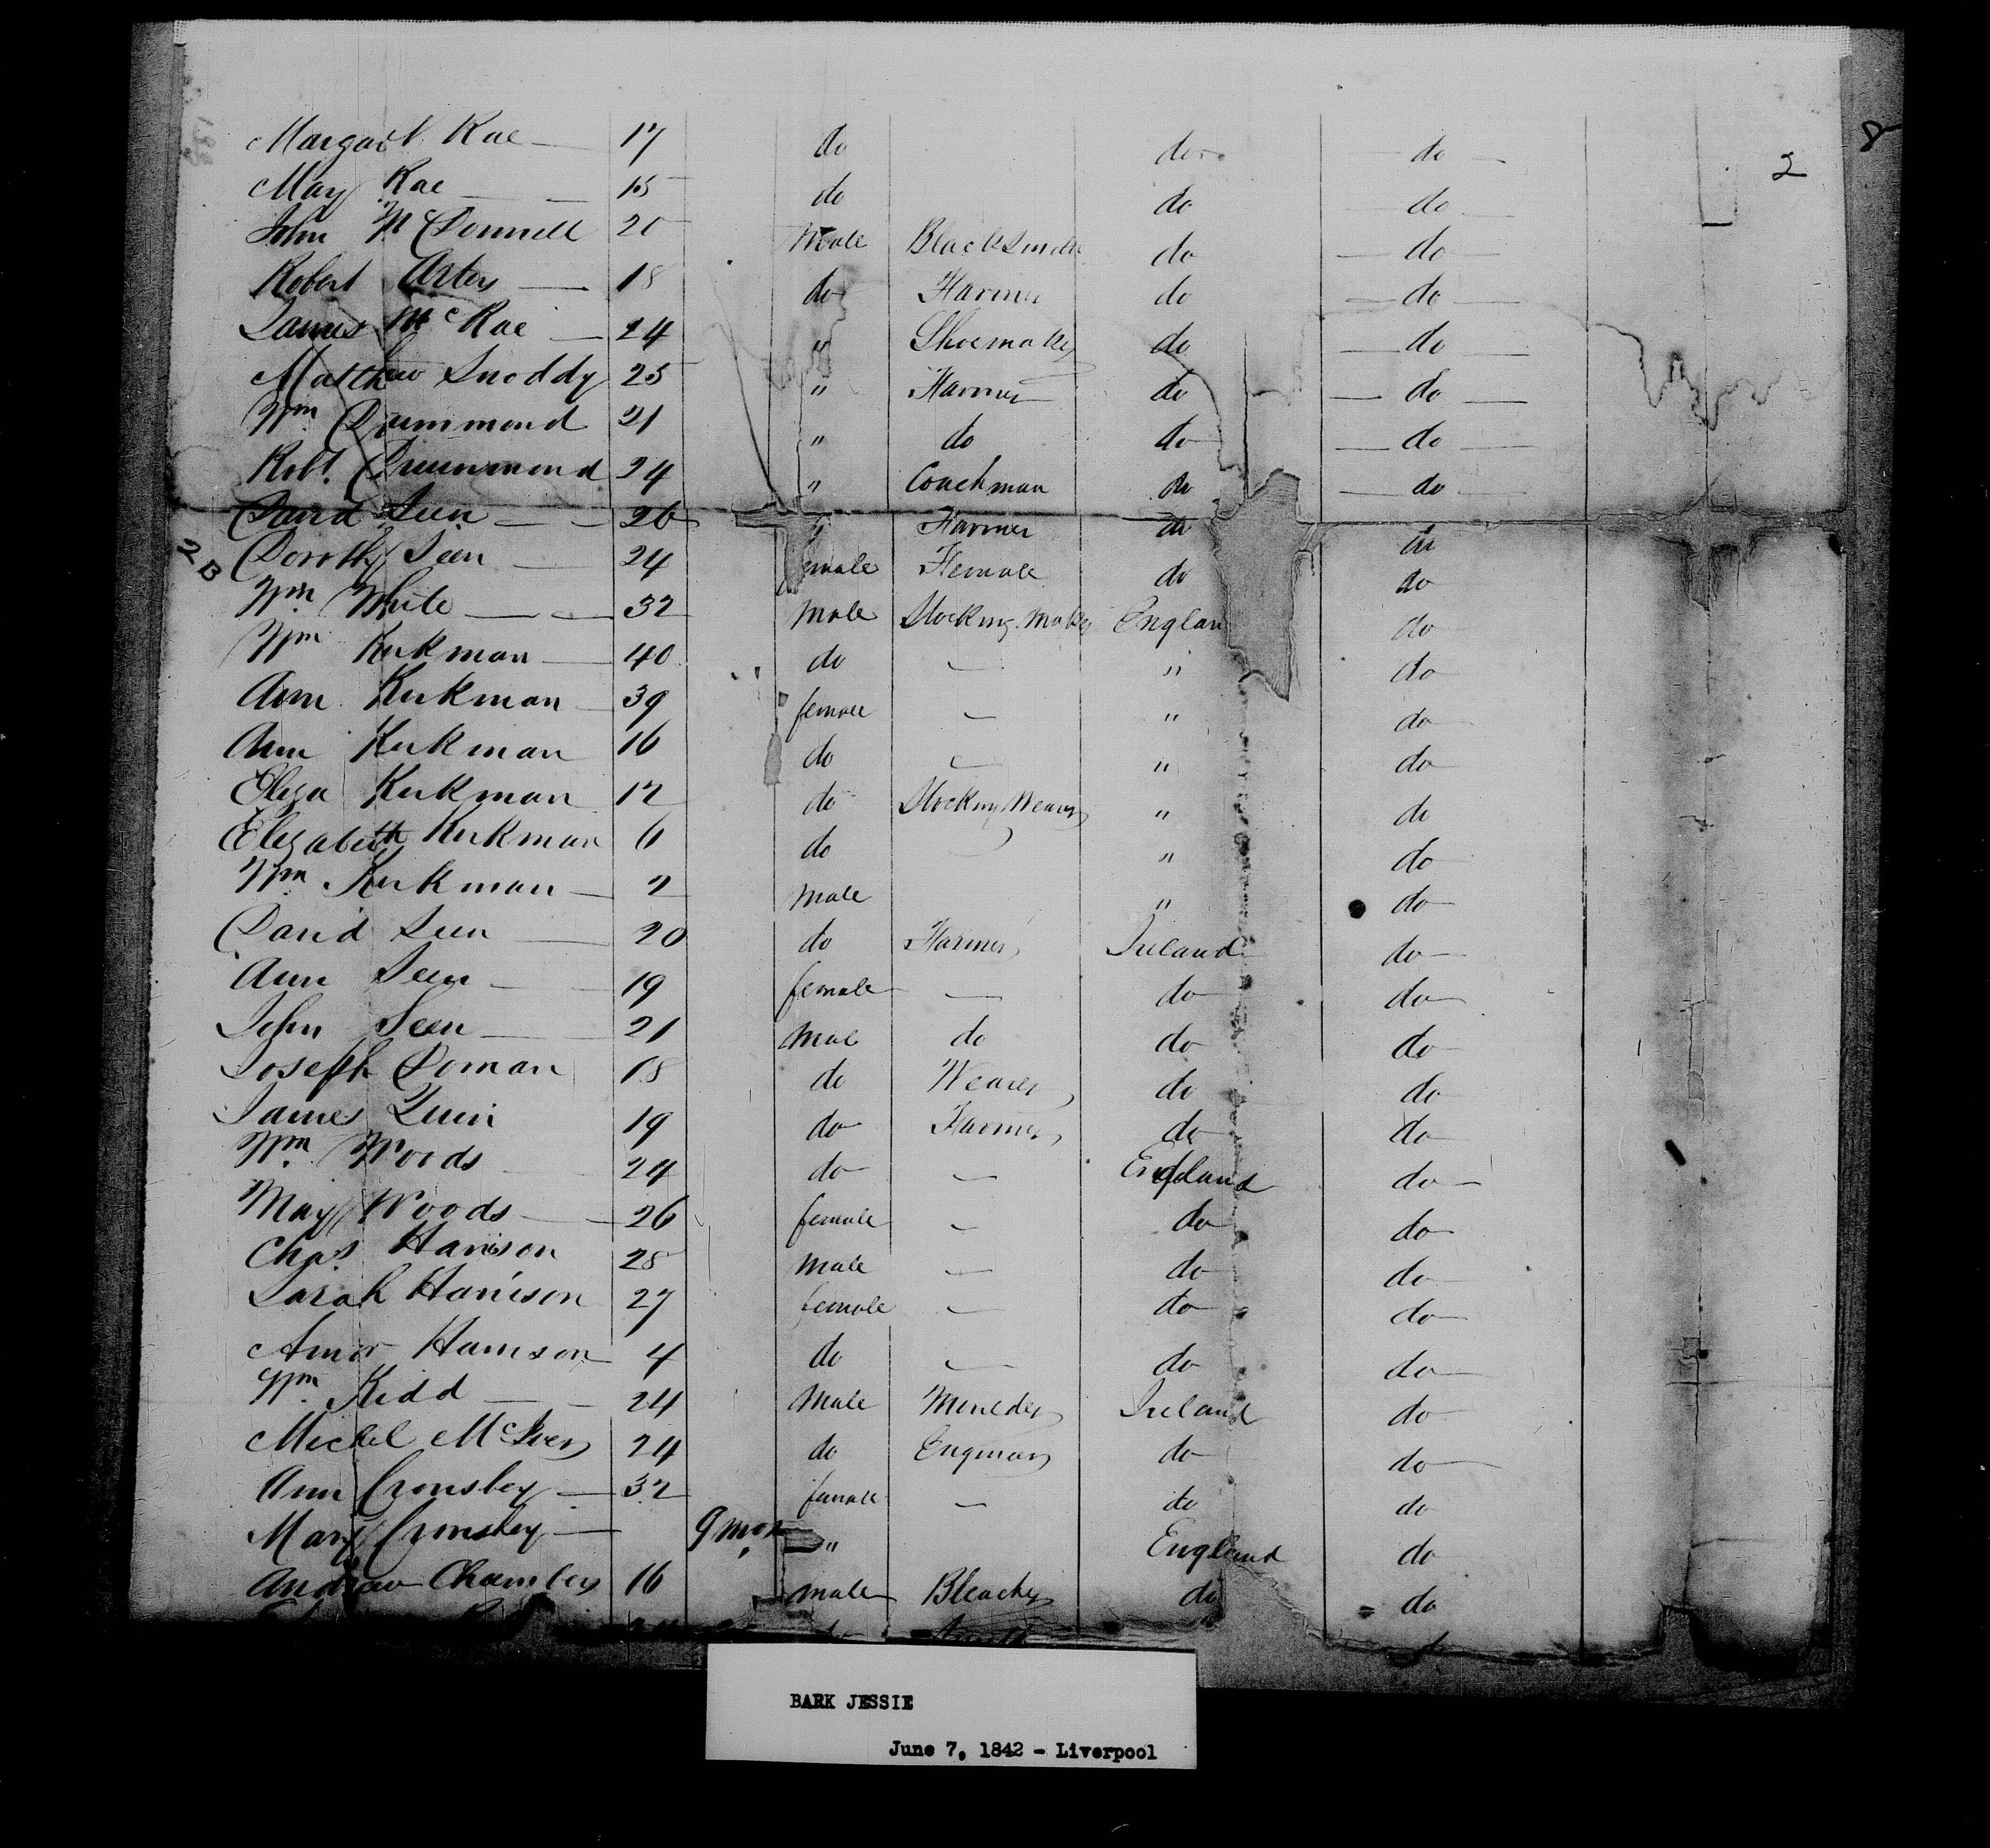 8
2
Margart Rae 17 do do do
May Rae 15 do do do
John Mc Donnell 20 Male Blacksmith do do
Robert Arters 18 do Farmer do do
James Mc Rae 24 " Shoemaker do do
Matthew Snoddy 25 " Farmer do do
Wm Drummond 21 " do do do
Robt. Drummond 24 " Coachman do do
David Seen 26 " Farmer do do
2B
Dorothy Seen 24 female Female do do
Wm White 32 Male Stocking Maker Englan do
Wm Kirkman 40 do " do
Ann Kirkman 39 female " do
Ann Kirkman 16 do " do
Eliza Kirkman 12 do Stocking Weaver " do
Elizabeth Kirkman 6 do " do
Wm Kirkman 2 Male " do
David Seen 20 do Farmer Ireland do
Ann Seen 19 female do do
John Seen 21 Male do do do
Joseph Doman 18 do Weaver do do
James Quin 19 do Farmer do do
Wm Woods 24 do England do
May Woods 26 female do do
Chas. Harrison 28 Male do do
Sarah Harrison 27 female do do
Harrison 4 do do do
Wm Kidd 24 Male Ireland do
Michel McIver 24 do do do
Ann Cronsbey 32 female do do
Mary Cronsbey 9 mos " England do
Andrew Chambers 16 male Bleacher do do
BARK JESSIE
June 7, 1842 - Liverpool